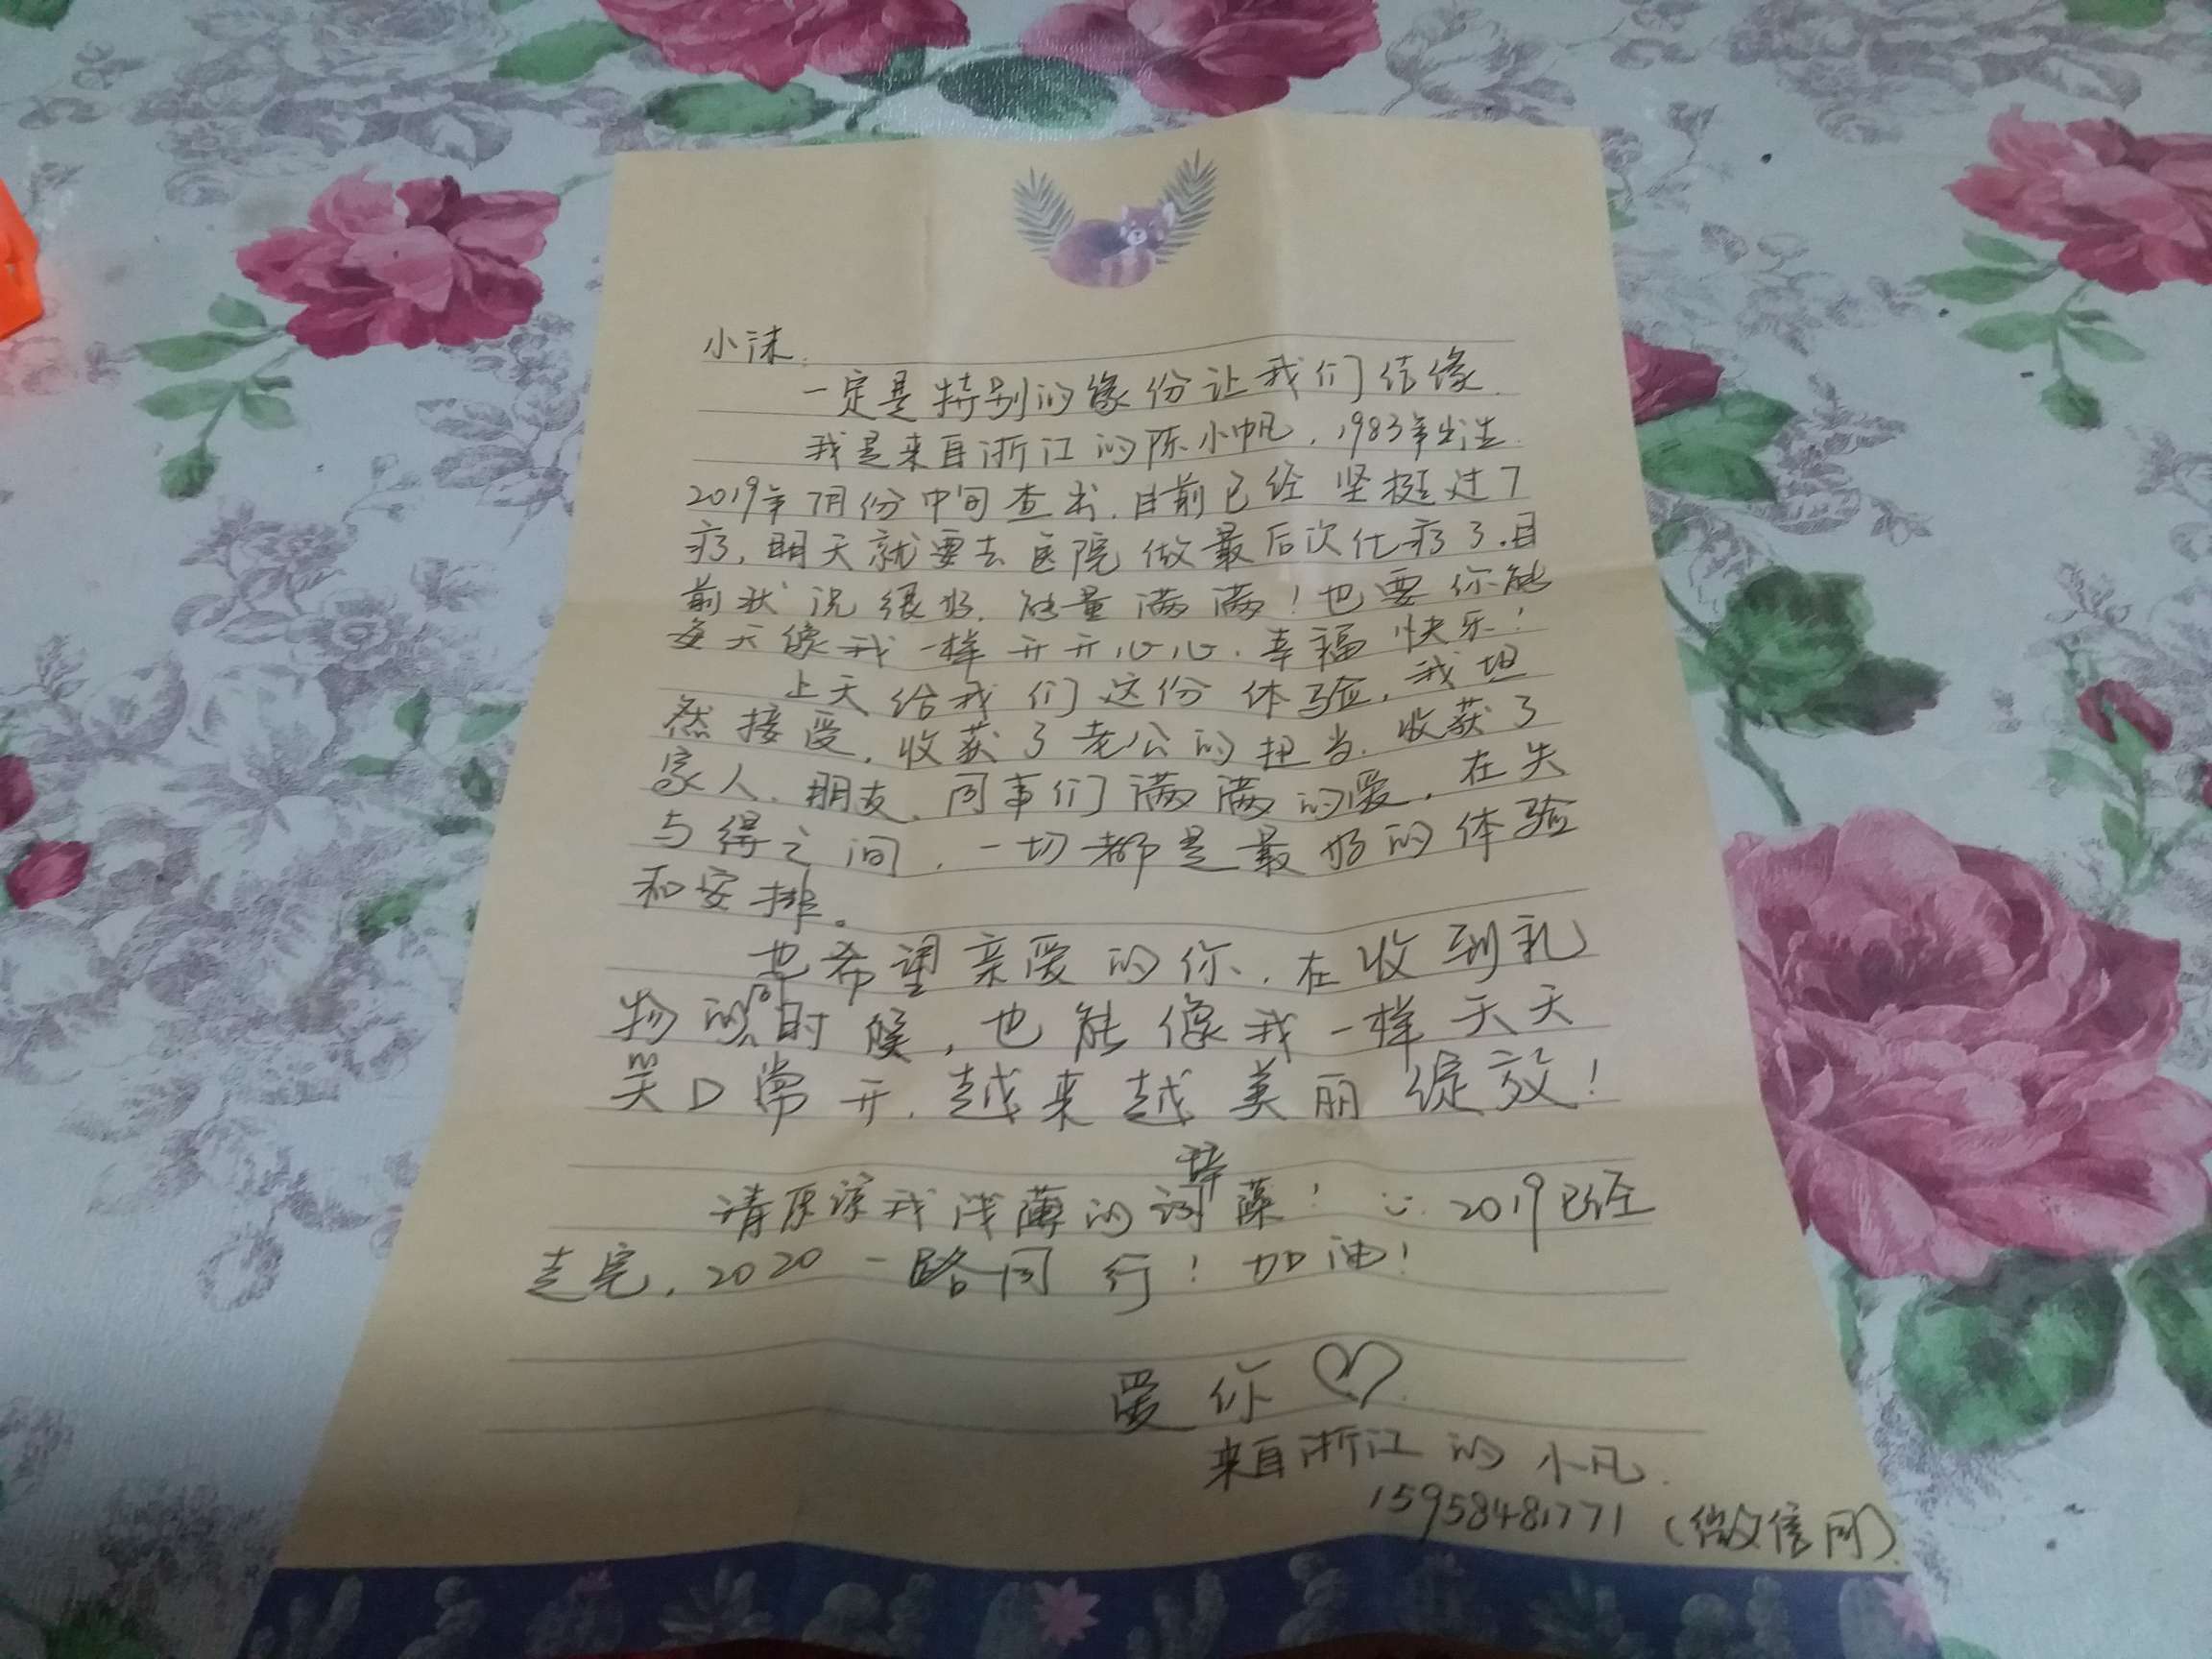 小沫.
一定是特别的缘份让我们结缘.
我是来自浙江的陈小帆,1983年出生.
2019年7月份中旬查出.目前已经坚挺过7
疗,明天就要去医院做最后次化疗了.目
前状况很好.能量满满!也要你能
每天像我一样开开心心.幸福快乐!
上天给我们这份体验,我坦
然接受,收获了老公的担当.收获了
家人.朋友.同事们满满的爱.在失
与得之间,一切都是最好的体验
和安排。
也希望亲爱的你,在收到礼
物的时候,也能像我一样天天
笑口常开.越来越美丽绽放!
请原谅我浅薄的辞藻! 2019已经
走完,2020一路同行!加油!
爱你
来自浙江的小凡.
15958481771(微信同).